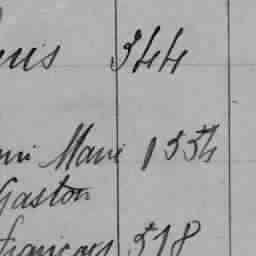 344
Marie 1554
Gaston
François 518